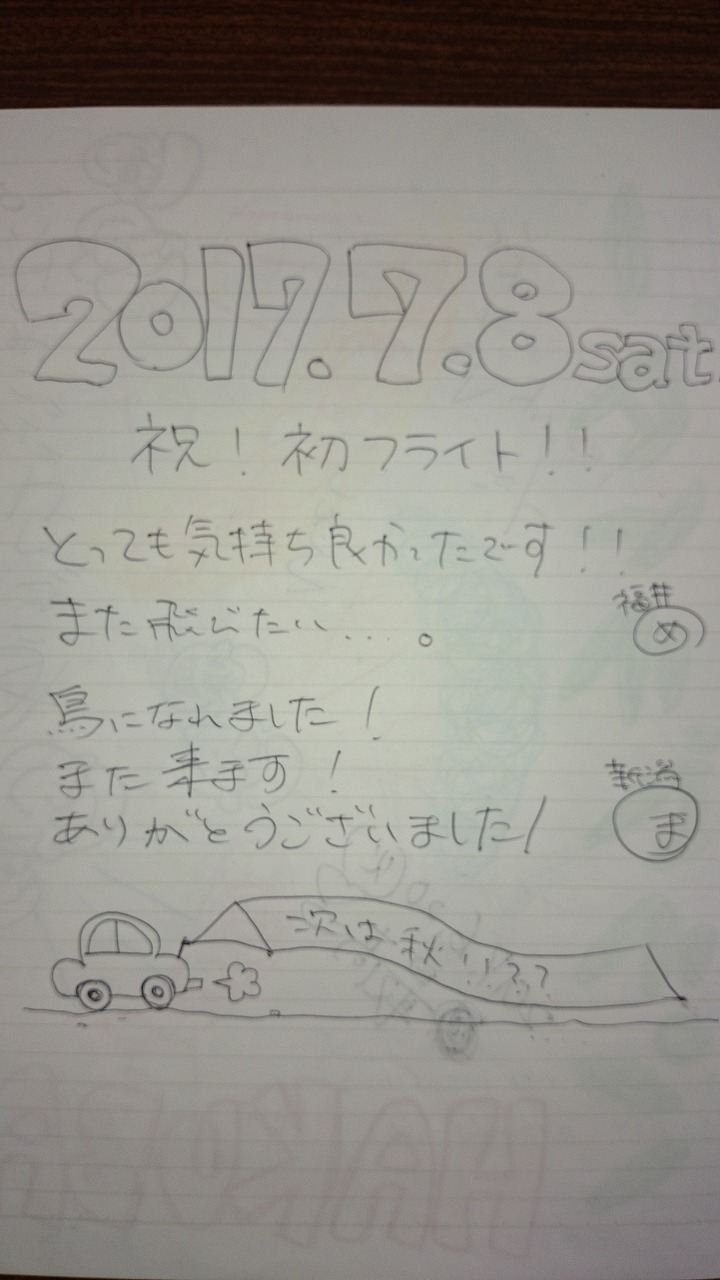 2017.7.8sat.
祝！初フライト！！
とっても気持ち良かったです！！
また飛びたい....。
福井
め
鳥になれました！
また来ます！
ありがとうございました！
新潟
ま
次は秋！！？？